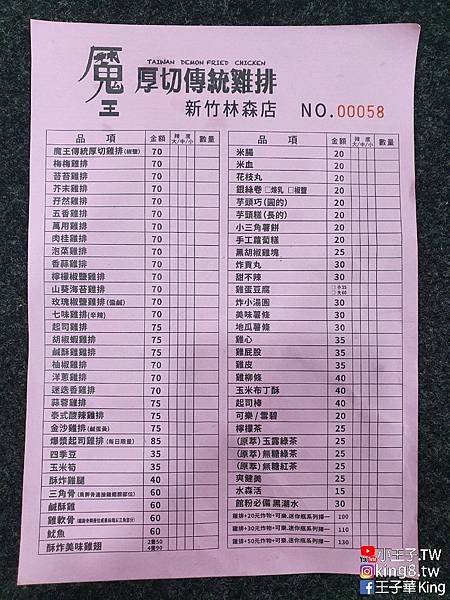 魔王
TAIWAN DEMON FRIED CHICKEN
厚切傳統雞排
新竹林森店 NO.00058
品項 金額 辣度 大/中/小 數量
魔王傳統厚切雞排(椒鹽) 70
梅梅雞排 70
苔苔雞排 70
芥末雞排 70
孜然雞排 70
五香雞排 70
萬用雞排 70
肉桂雞排 70
泡菜雞排 70
香蒜雞排 70
檸檬椒鹽雞排 70
山葵海苔雞排 70
玫瑰椒鹽雞排(偏鹹) 70
七味雞排(辛辣) 70
起司雞排 75
胡椒蝦雞排 75
鹹酥雞雞排 75
柚椒雞排 70
洋蔥雞排 70
迷迭香雞排 70
蒜蓉雞排 75
泰式酸辣雞排 75
金沙雞排(鹹蛋黃) 75
爆漿起司雞排(每日限量) 85
四季豆 35
玉米筍 35
酥炸雞腿 40
三角骨 60
鹹酥雞 60
雞軟骨 60
魷魚 60
酥炸美味雞翅 2隻50 4隻90
品項 金額 辣度 大/中/小 數量
米腸 20
米血 20
花枝丸 20
銀絲卷 □煉乳 □椒鹽 20
芋頭巧(圓的) 20
芋頭糕(長的) 20
小三角薯餅 20
手工蘿蔔糕 20
黑胡椒雞塊 25
炸貢丸 30
甜不辣 30
雞蛋豆腐 □小35 □大60
炸小湯圓 30
美味薯條 30
地瓜薯條 30
雞心 35
雞屁股 35
雞皮 35
雞柳條 40
玉米布丁酥 40
起司棒 40
可樂/雪碧 20
檸檬茶 25
(原萃)玉露綠茶 25
(原萃)無糖綠茶 25
(原萃)無糖紅茶 25
爽健美 25
水森活 15
館粉必備 黑潮水 30
雞排+20元炸物+可樂.迷你瓶系列擇一 100
雞排+30元炸物+可樂.迷你瓶系列擇一 110
雞排+50元炸物+可樂.迷你瓶系列擇一 130
小王子.TW
king8.tw
王子華 King